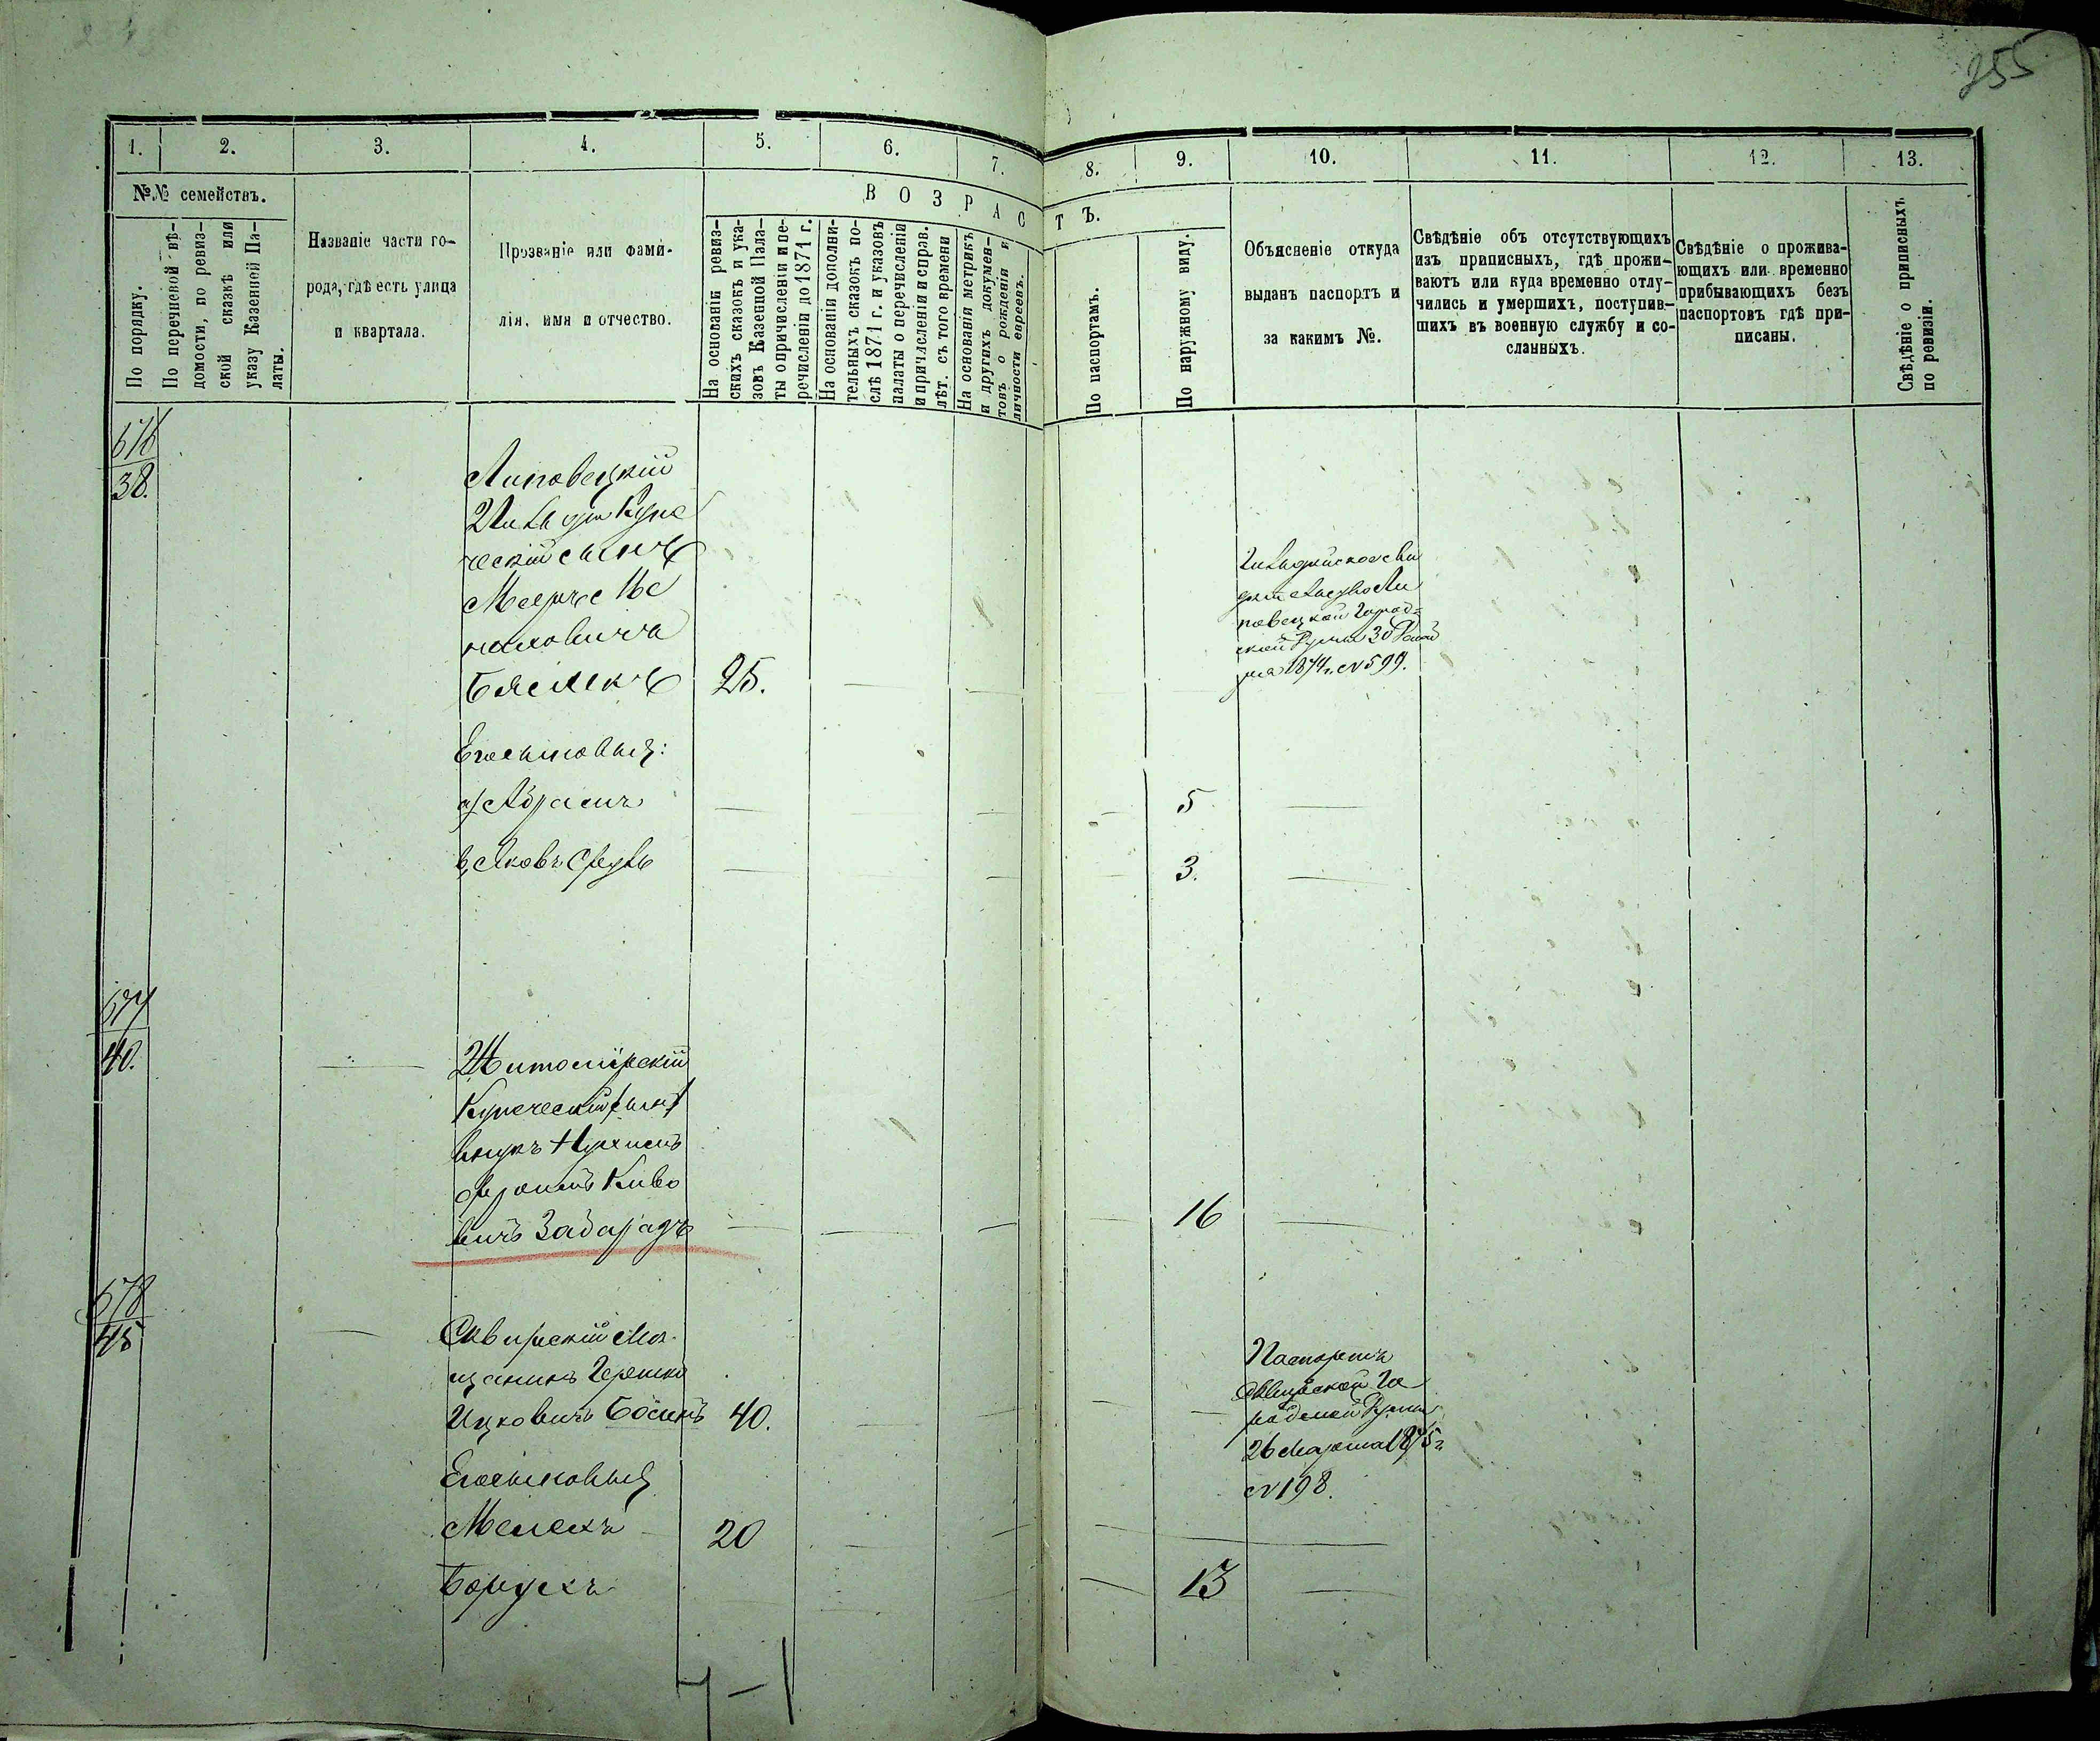 255
1. 2. 3. 4. 5. 6. 7. 8. 9. 10. 11. 12. 13.
№№ семействъ.
По порядку.
По перечневой вѣ-
домости, по ревиз-
ской сказкѣ или
указу Казенной Па-
латы.
Названіе части го-
рода, гдѣ есть улица
и квартала.
Прозваніе или фами-
лія, имя и отчество.
ВОЗРАСТЪ.
На основаніи ревиз-
скихъ сказокъ и ука-
зовъ Казенной Пала-
ты о причисленіи и пе-
речисленіи до 1871 г.
На основаніи дополни-
тельныхъ сказокъ по-
слѣ 1871 г. и указовъ
палаты о перечисленіи
и причисленіи и справ.
лѣт. съ того времени
На основаніи метрикъ
и другихъ докумен-
товъ о рожденіи и
личности евреевъ.
По паспортамъ.
По наружному виду.
Объясненіе откуда
выданъ паспортъ и
за какимъ №.
Свѣдѣніе объ отсутствующихъ
изъ приписныхъ, гдѣ прожи-
ваютъ или куда временно отлу-
чились и умершихъ, поступив-
шихъ въ военную службу и со-
сланныхъ.
Свѣдѣніе о прожива-
ющихъ или временно
прибывающихъ безъ
паспортовъ гдѣ при-
писаны.
Свѣдѣніе о приписныхъ
по ревизіи.
676
38.
Липовецкій
2й Гильдіи Купе
ческій сынъ
25.
повецкой Город-
ской Думы 30
1874 г. №599.
Его сыновья:
а) Абрамъ 5
в) Яковъ 3.
677
40.
Житомірскій
Купеческій сынъ
внукъ
Киво
вичъ 16
678
45
Сквирскій Мѣ-
щанинъ Гершко
Ицковичъ 40.
Паспортъ
Сквирской Го
родской Думы
26 Марта 1875 г.
№198.
Его сыновья
Мелехъ 20
Борухъ 13
7-1